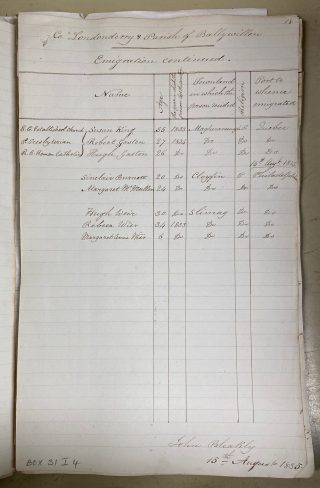 Co. Londonderry & Parish of Ballywillen
Emigration continued
Name Age Townland in which the person resided Religion Port to whence emigrated
E.C. Established Church Susan King 25 1835 E Quebec
P. Presbyterian Robert Gaston 27 1834 Do Do Do
R.C. Roman Catholic Hugh Gaston 26 Do Do Do Do
14th Augt. 1835
Sinclair Burnett 20 Do Cloyfin P Philadelphia
Margaret McMullan 24 Do Do Do Do
Hugh Weir 30 Do Do Do
Rebecca Wier 34 1835 Do Do Do
Margaret Anne Wier 6 Do Do Do Do
John Bleakly
15th August 1835
BOX 31 I 4